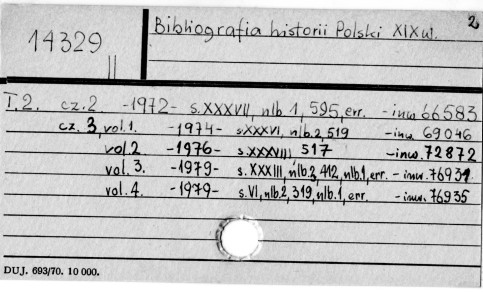 2
14329 Bibliografia historii Polski XIXw.
II
T.2. cz.2 -1972- s.XXXVII, nlb.1, 595, err. -inw 66583
cz.3, vol.1. -1974- sXXXVI, nlb.2, 519 -inw. 69046
vol.2 -1976- s.XXXVIII, 517 -inw.72872
vol.3. -1979- s.XXXIII, nlb.3, 412, nlb.1, err. -inw.76931
vol.4. -1979- s.VI, nlb.2, 319, nlb.1, err. -inw.76935
DUJ. 693/70. 10 000.